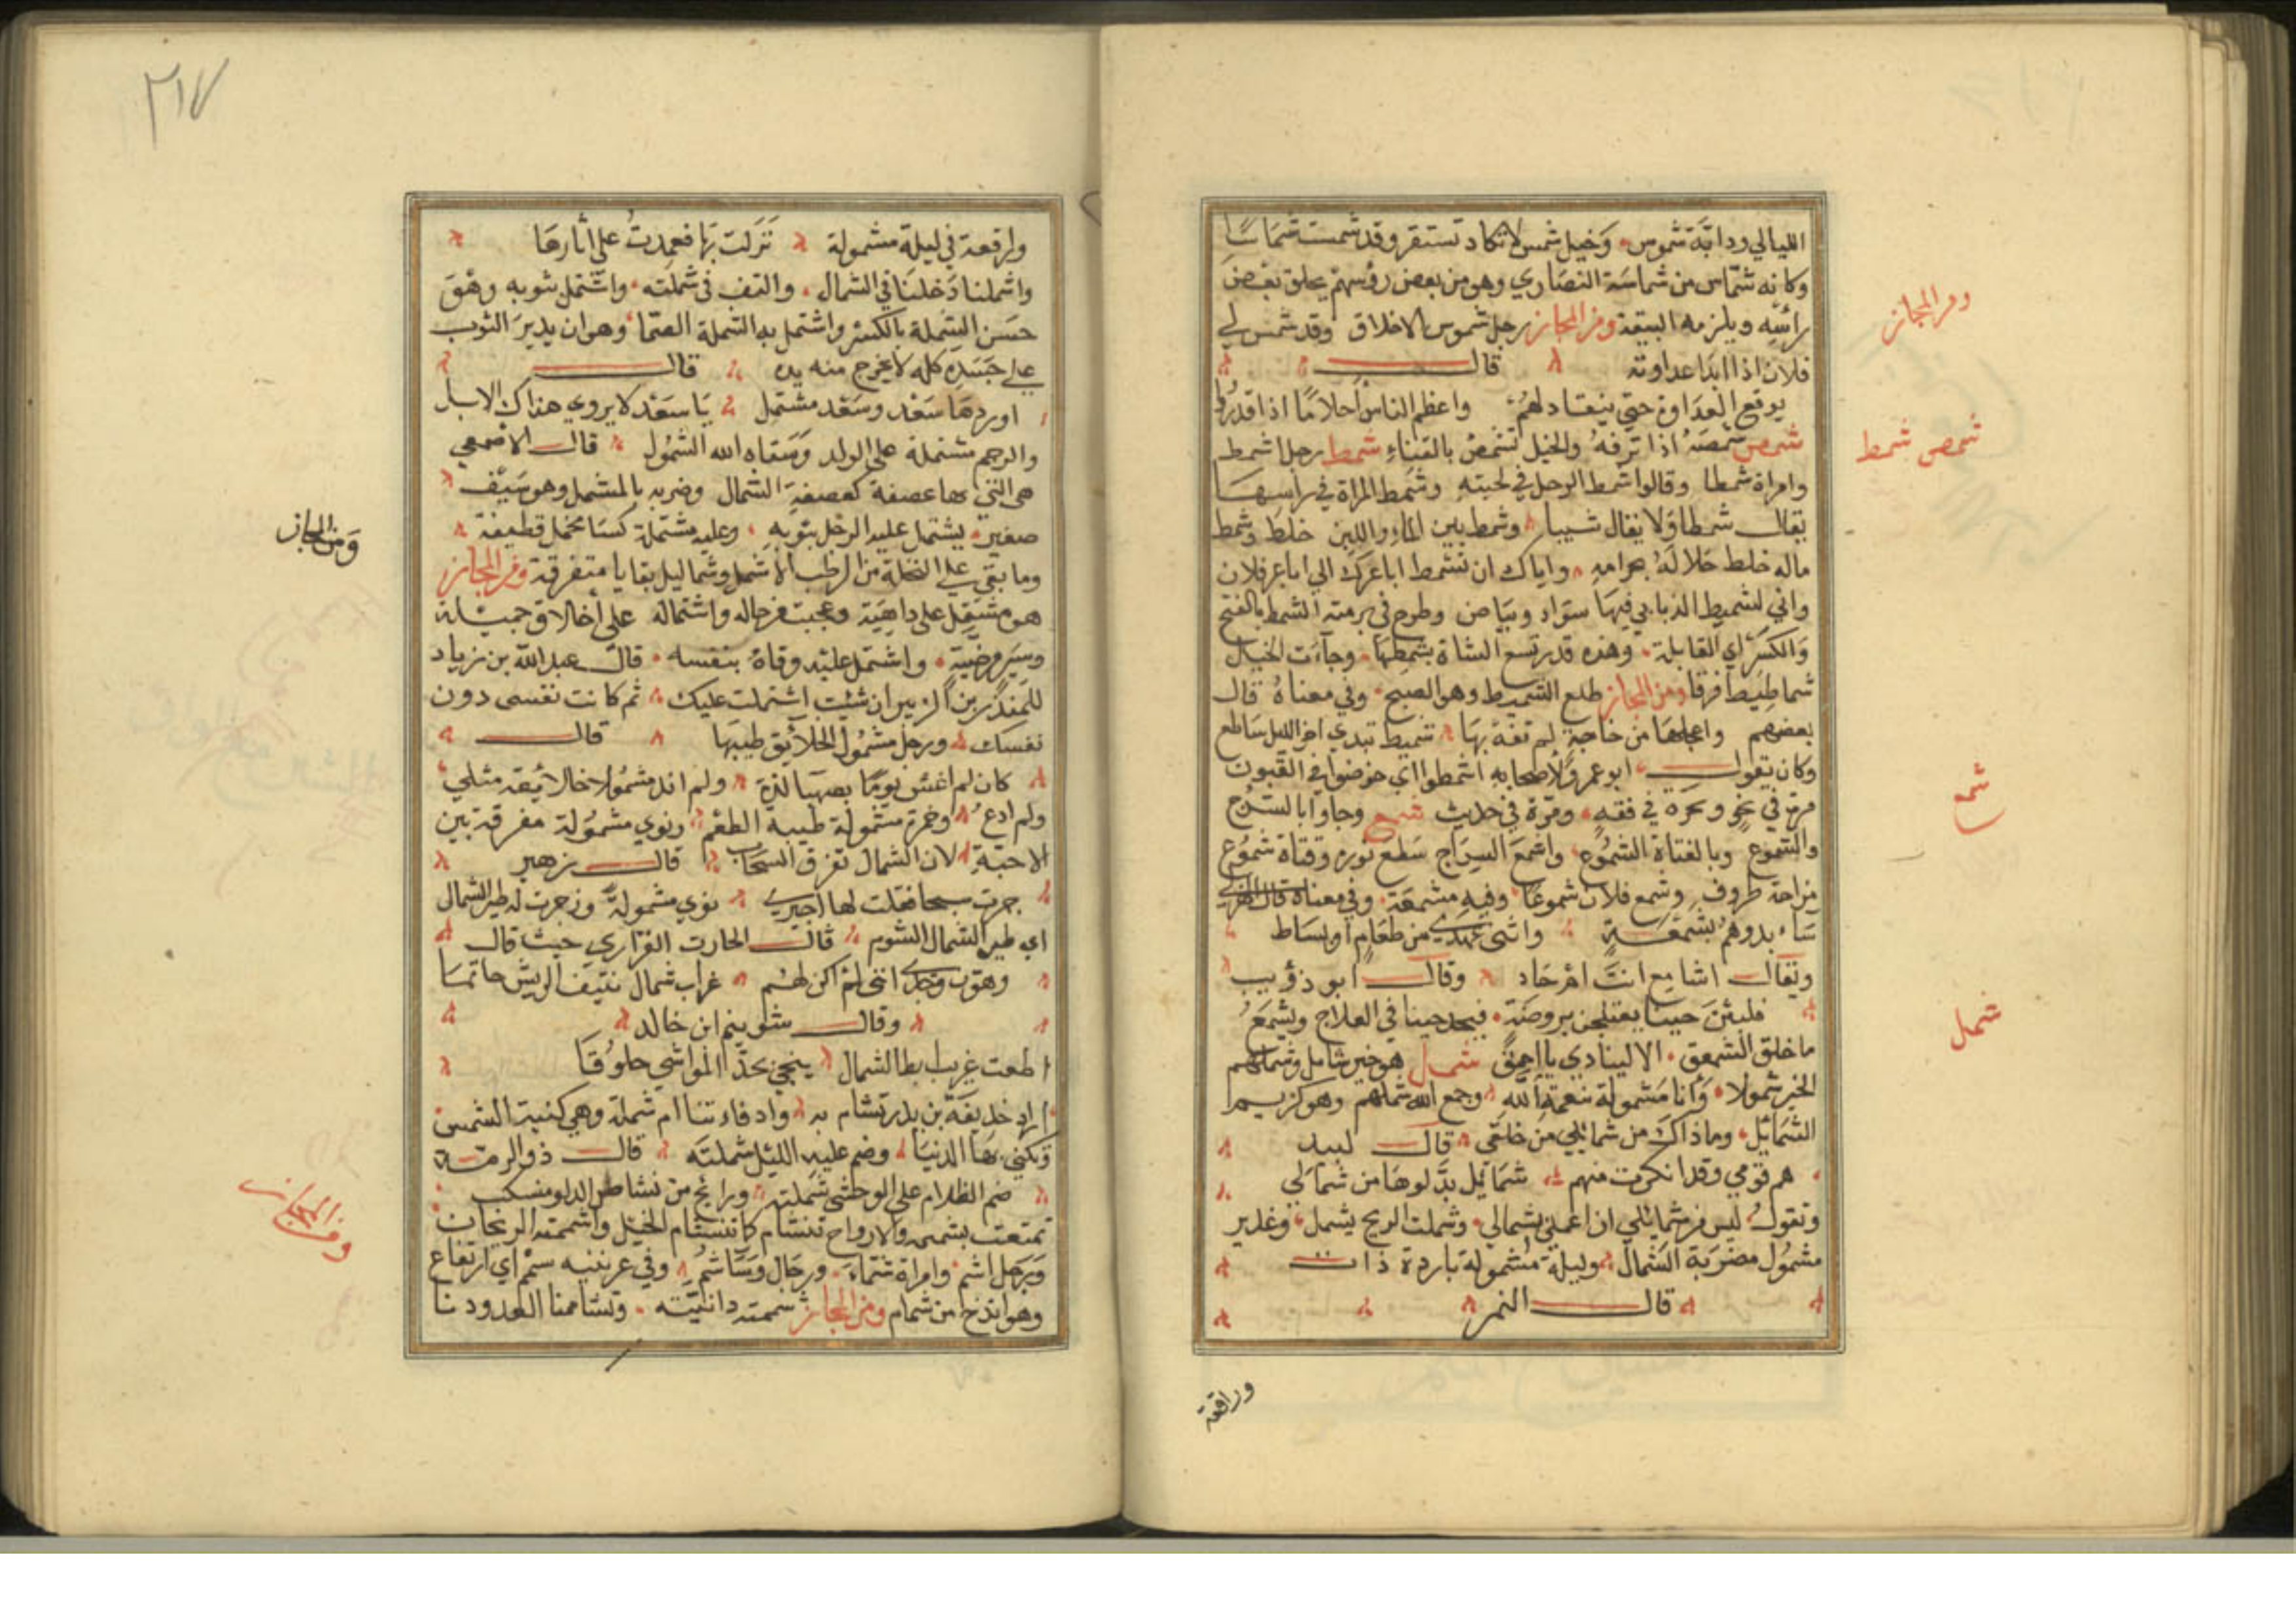 الليالي ودابة شموس وخيل شمس لا تكاد تستقر وقد شمست شماسا
وكانه شماس من شماسة النصاري وهو من بعض رؤسهم يحلق بعض
راسه ويلزم البيعة ومن المجاز رجل شموس الاخلاق وقد شمس لي
فلان اذا ابدا عداوته قال
العداوة حتي ينقاد لهم واعظم الناس احلاما اذا قدروا
شمص شمصه اذا نزفه والخيل تشمص بالقناء شمط رجل اشمط
وامراة شمطا وقالوا شمط الرجل في لحيته وشمط المراة في راسها
يقال شمطا ولا يقال شيبا وشمط بين الماء واللبن خلط وشمط
ماله خلط حلاله بحرامه واياك ان تشمط
واني لشميط الذنابي فيها سواد وبياض وطرح في برمته الشمط بالفتح
والكسر اي القابلة وهذه قدر تسع الشاة بشمطها وجآءت الخيل
شماطيط فرقا ومن المجاز طلع الشميط وهو الصبح وفي معناه قال
بعضهم واعجلها من حاجة لم تفه بها شميط تبدي اخر الليل ساطع
وكان يقول ابو عمرو لاصحابه اشمطوا اي خوضوا في الفنون
مرة في نحو ومرة في فقه ومرة في حديث شمع وجاوا بالسرج
والشموع وبالفتاة الشموع واشمع السراج سطع نوره وفتاة شموع
مزاحة ظروف وشمع فلان شموعا وفيه مشمعة وفي معناه قال الهذلي
بمشمعة واثنى بجهدي من طعام او بساط
ويقال اشامع انت ام جاد وقال ابو ذؤيب
فلبثن حينا يعتلجن بروضة فيجد حينا في العلاج ويشمع
ما خلق الشمعق الا لينادي يا احمق شمل هو خير شامل وشملهم
الخير شمولا وانا مشمولة بنعمة الله وجمع الله شملهم وهو كريم
الشمائل وما ذاك من شمائلي من خلقي قال لبيد
هم قومي وقد انكرت منهم شمائل بدلوها من شمالي
وتقول ليس من شمائلي ان اعمل بشمالي وشملت الريح يشمل وغدير
مشمول مضربة الشمال وليلة مشمولة باردة ذات
قال النمر
وراقعة
ومن المجاز
شمص شمط
شمع
شمل
٢١٧
وراقعة في ليلة مشمولة نزلت بها فعمدت على اثارها
واشملنا دخلنا في الشمال والتف في شملته واشتمل بثوبه وهو
حسن الشملة بالكسر واشتمل به الشملة الصما وهو ان يدير الثوب
علي جسده كله لا يخرج منه يده قال
اوردها سعد وسعد مشتمل يا سعد لا يروي هذاك الابل
والرحم مشتملة على الولد وسقاه الله الشمول قال الاصمعي
هي التي لها عصفة كعصفة الشمال وضربه بالمشمل وهو سيف
صغير يشتمل عليه الرجل بثوبه وعليه مشتملة كسا مخمل قطيفة
وما بقي علي النخلة من الرطب الا شمل وشماليل بقايا متفرقة ومن المجاز
هو مشتمل على داهية وعجبت من حاله واشتماله على اخلاق جميلة
وسير مرضية واشتمل عليه وقاه بنفسه قال عبد الله بن زياد
للمنذر بن الزبير ان شئت اشتملت عليك ثم كانت نفسى دون
نفسك ورجل مشمول الخلائق طيبها قال
كان لم اغش يوما بصهبا لذة ولم اند مشمولا خلائقه مثلي
ولم ادع وخمرة مشمولة طيبة الطعم ونوي مشمولة مفرقة بين
الاحبة لان الشمال تفرق السحاب قال زهير
جرت سنحا فقلت لها اجيزي نوي مشمولة وزجرت له طير الشمال
اي طير الشمال الشوم قال الحارث الفزاري حيث قال
وهون وجدي انني لم اكن لهم غراب شمال نتيف الريش حاتما
وقال شتيم ابن خالد
اطعت غريب ابط الشمال ينحي بحد المواسي حلوقا
اراد خليفة بن بدر تشام به وادفاءتنا ام شملة وهي كنية الشمس
ويكني بها الدنيا وضم عليه الليل شملته قال ذو الرمة
ضم الظلام على الوحشى شملته ورائح من نشاص الدلو منسكب
تمتعت بشمه والارواح تتشام كما تتشام الخيل واشممته الريحان
ورجل اشم وامراة شماء ورجال ونساء شم وفي عرنينه شمم اي ارتفاع
وهو ابذخ من شمام ومن المجاز شممته دانيته وتشاممنا العدو دنا
ومن المجاز
ومن المجاز